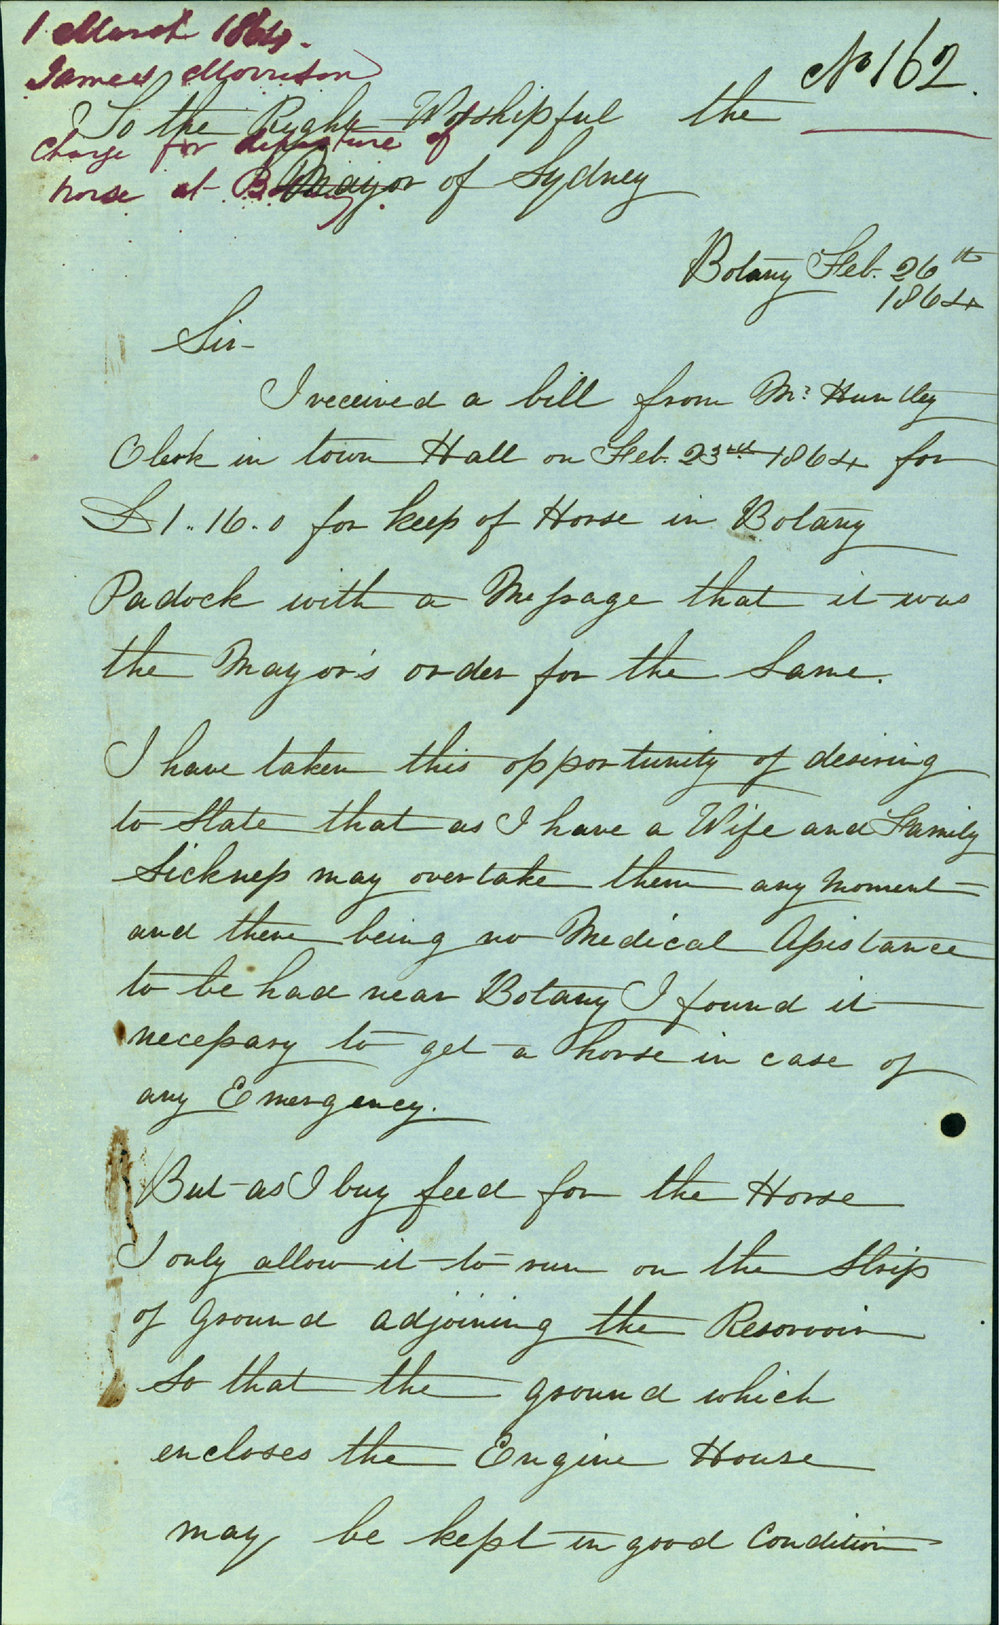 1 March 1864.
James Morrison
No 162.
To the Right Worshipful the
charge for depasture of
horse at Botany.
Mayor of Sydney
Botany Feb. 26th
1864
Sir-
I received a bill from Mr. Huntley
Clerk in town Hall on Feb. 23rd 1864 for
£1..16.0 for keep of Horse in Botany
Padock with a Message that it was
the Mayor's order for the Same.
I have taken this opportunity of desiring
to State that as I have a Wife and Family
Sickness may overtake them any moment
and there being no Medical Asistance
to be had near Botany I found it
necessary to get a horse in case of
any Emergency.
But as I buy feed for the Horse
I only allow it to run on the Strip
of Ground adjoining the Resorvoir
So that the ground which
encloses the Engine House
may be kept in good Condition